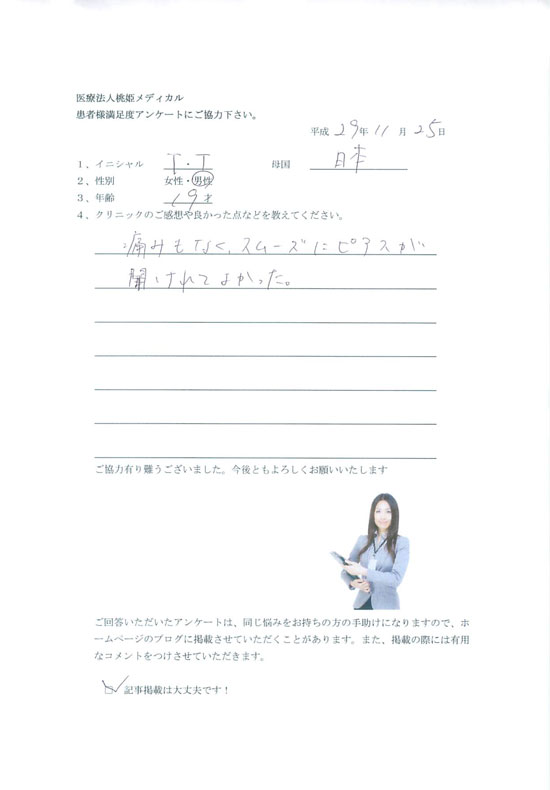 医療法人桃姫メディカル
患者様満足度アンケートにご協力下さい。
平成 29年 11 月 25日
1、イニシャル T・T 母国 日本
2、性別 女性・男性
3、年齢 19才
4、クリニックのご感想や良かった点などを教えてください。
痛みもなく、スムーズにピアスが
開けれてよかった。
ご協力有り難うございました。今後ともよろしくお願いいたします
ご回答いただいたアンケートは、同じ悩みをお持ちの方の手助けになりますので、ホ
ームページのブログに掲載させていただくことがあります。また、掲載の際には有用
なコメントをつけさせていただきます。
記事掲載は大丈夫です！